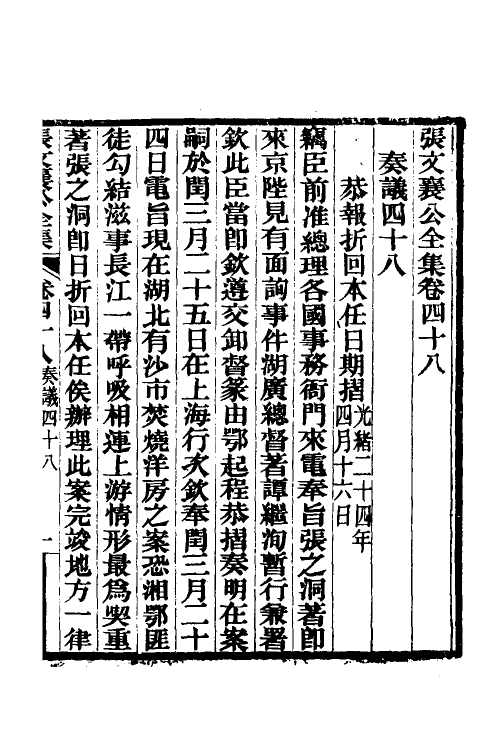 張文襄公全集卷四十八
奏議四十八
恭報折回本任日期摺光緒二十四年四月十六日
竊臣前准總理各國事務衙門來電奉旨張之洞著即
來京陛見有面詢事件湖廣總督著譚繼洵暫行兼署
欽此臣當即欽遵交卸督篆由鄂起程恭摺奏明在案
嗣於閏三月二十五日在上海行次欽奉閏三月二十
四日電旨現在湖北有沙市焚燒洋房之案恐湘鄂匪
徒勾結滋事長江一帶呼吸相連上游情形最爲喫重
著張之洞即日折回本任俟辦理此案完竣地方一律
張文襄公全集 卷四十八 奏議四十八 一